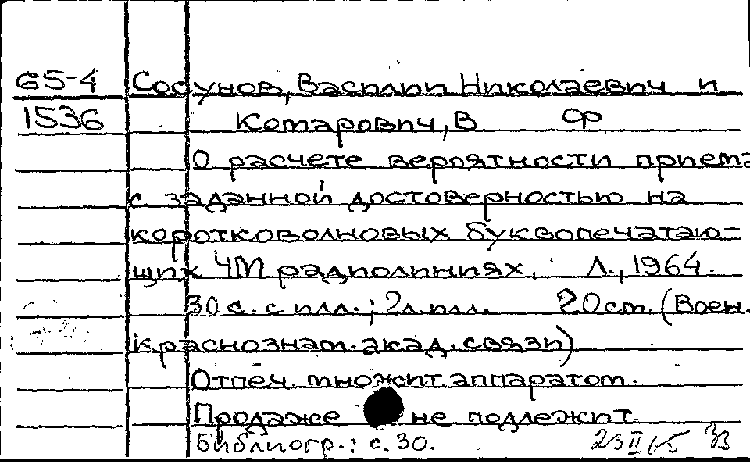 Б5-4 Сосунов, Василий Николаевич и
1536 Комарович, В Ф
О расчете вероятности приема
с заданной достоверностью на
коротковолновых буквопечатаю-
щих ЧМ радиолиниях. Л., 1964.
30 с. с илл.; 2 л. илл. 20 см. (Воен.
краснознам. акад. связи)
Отпеч. множит. аппаратом.
Продаже не подлежит.
Библиогр.: с. 30. 23 II 65